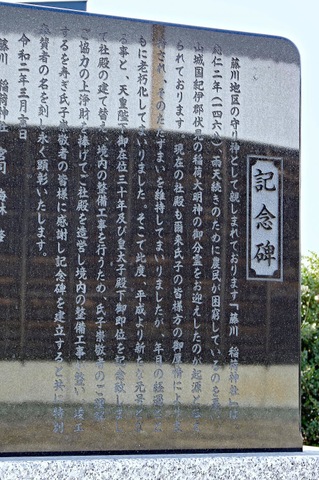 記念碑
藤川地区の守り神として親しまれております「藤川 稲荷神社」は
二年(一四六八)雨天続きのために農民が困窮しているのを
山城国紀伊郡伏見の稲荷大明神の御分霊をお迎えしたのが起源と
られております。現在の社殿も爾来氏子の皆様方の御厚情により
され、そのたたずまいを維持してまいりましたが、年月の経過と
もに老朽化してまいりました。そこで此度、平成より新しい元号
る事と、天皇陛下御在位三十年及び皇太子殿下御即位を記念致しまし
て社殿の建て替え、境内の整備工事を行うため、氏子崇敬者の
ご協力の上浄財を捧げてご社殿を造営し境内の整備工事を
するを寿ぎ氏子崇敬者の皆様に感謝し記念碑を建立すると共に特別
賛者の名を刻し永く顕彰いたします。
令和二年三月吉日
藤川 稲荷神社 宮司